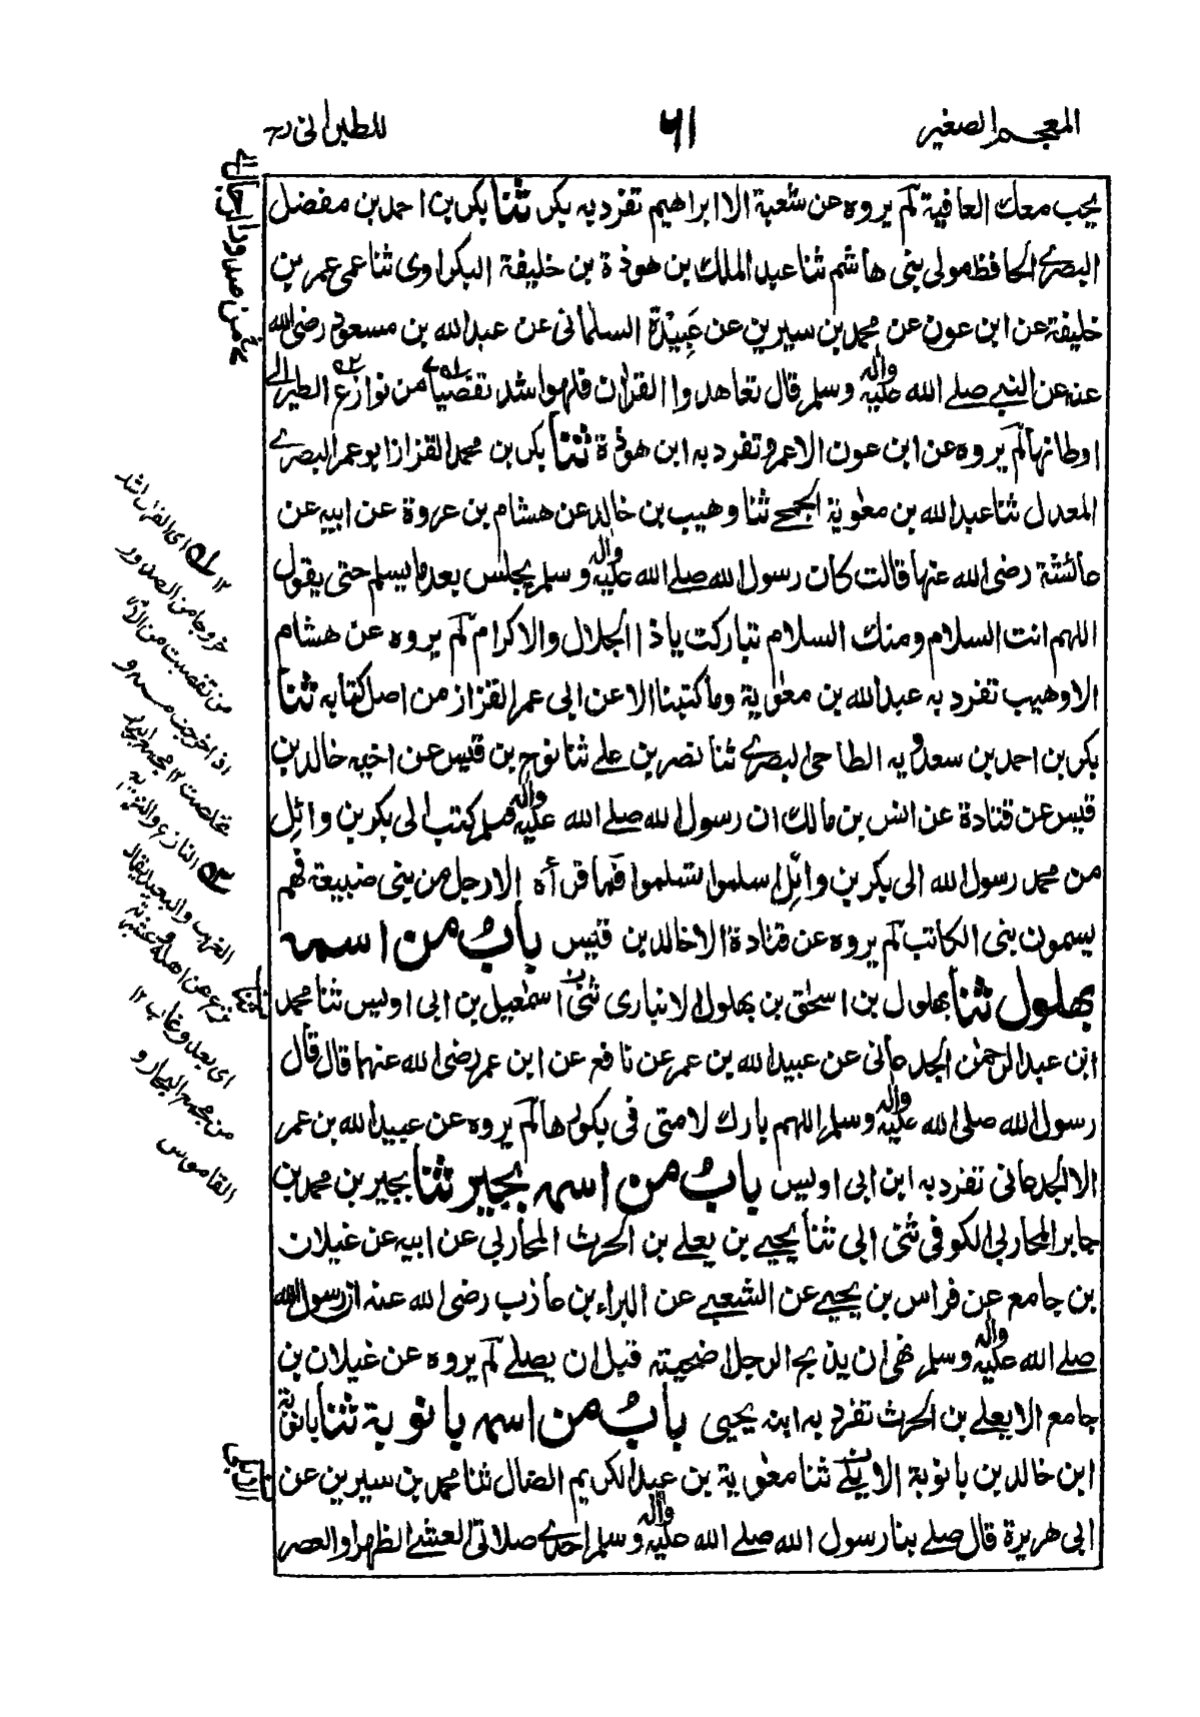 المعجم الصغير
٦١
للطبرانی رح
يحب معك العافية لم يروه عن شعبة الا ابراهيم تفرد به بكر ثنا بكر بن احمد بن مفضل
البصرے الحافظ مولى بنى هاشم ثنا عبد الملك بن هوذة بن خليفة البكراوى ثنا عمى عمر بن
خليفة عن ابن عون عن محمد بن سيرين عن عَبِيْدَة السلمانى عن عبد الله بن مسعود رضى الله
عنه عن النبى صلے الله عليه واٰله وسلم قال تعاهدوا القراٰن فلهو اشد تفصيا من نوازع الطير الے
اوطانها لم يروه عن ابن عون الا عمر وتفرد به ابن هوذة ثنا بكر بن محمد القزاز ابو عمر البصرے
المعدل ثنا عبد الله بن معٰوية الجمحے ثنا وهيب بن خالد عن هشام بن عروة عن ابيه عن
عائشة رضى الله عنها قالت كان رسول الله صلے الله عليه واٰله وسلم يجلس بعد ما يسلم حتى يقول
اللهم انت السلام ومنك السلام تباركت ياذا الجلال والاكرام لم يروه عن هشام
الا وهيب تفرد به عبد الله بن معٰوية وما كتبنا الا عن ابى عمر القزاز من اصل كتابه ثنا
بكر بن احمد بن سعدويه الطاحى البصرے ثنا نصر بن علے ثنا نوح بن قيس عن اخيه خالد بن
قيس عن قتادة عن انس بن مالك ان رسول الله صلے الله عليه واٰله وسلم كتب الى بكر بن وائل
من محمد رسول الله الى بكر بن وائل اسلموا تسلموا فما قرأه الا رجل من بنى ضبيعة فهم
يسمون بنى الكاتب لم يروه عن قتادة الا خالد بن قيس باب من اسمه
بهلول ثنا بهلول بن اسحٰق بن بهلول الانبارى ثنى اسمٰعيل بن ابى اويس ثنا محمد
ابن عبد الرحمٰن الجدعانى عن عبيد الله بن عمر عن نافع عن ابن عمر رضى الله عنهما قال قال
رسول الله صلى الله عليه واٰله وسلم اللهم بارك لامتى فى بكورها لم يروه عن عبيد الله بن عمر
الا الجدعانى تفرد به ابن ابى اويس باب من اسمه بجير ثنا بجير بن محمد بن
جابر المحاربى الكوفى ثنى ابى ثنا يحيے بن يعلے بن الحرث المحاربى عن ابيه عن غيلان
بن جامع عن فراس بن يحيے عن الشعبے عن البراء بن عازب رضى الله عنه ان رسول الله
صلے الله عليه واٰله وسلم نهى ان يذبح الرجل اضحيته قبل ان يصلے لم يروه عن غيلان بن
جامع الا يعلے بن الحرث تفرد به ابنه يحيى باب من اسمه بانوبة ثنا بانوبة
ابن خالد بن بانوبة الايلے ثنا معٰوية بن عبد الكريم الضال ثنا محمد بن سيرين عن
ابى هريرة قال صلے بنا رسول الله صلے الله عليه واٰله وسلم احدے صلاتى العشے الظهر او العصر
من صدور الرجال
١٢ ل٥ اى القران اشد
خروجا من الصدور
من تفصيت من الامر
اذا خرجت منه و
تخلصت ١٢ مجمع البحار
٥٢ النازع والنزيع
الغريب والبعيد يقال
نزع عن اهله وعشيرته
اى بعد وغاب ١٢
من مجمع البحار و
القاموس